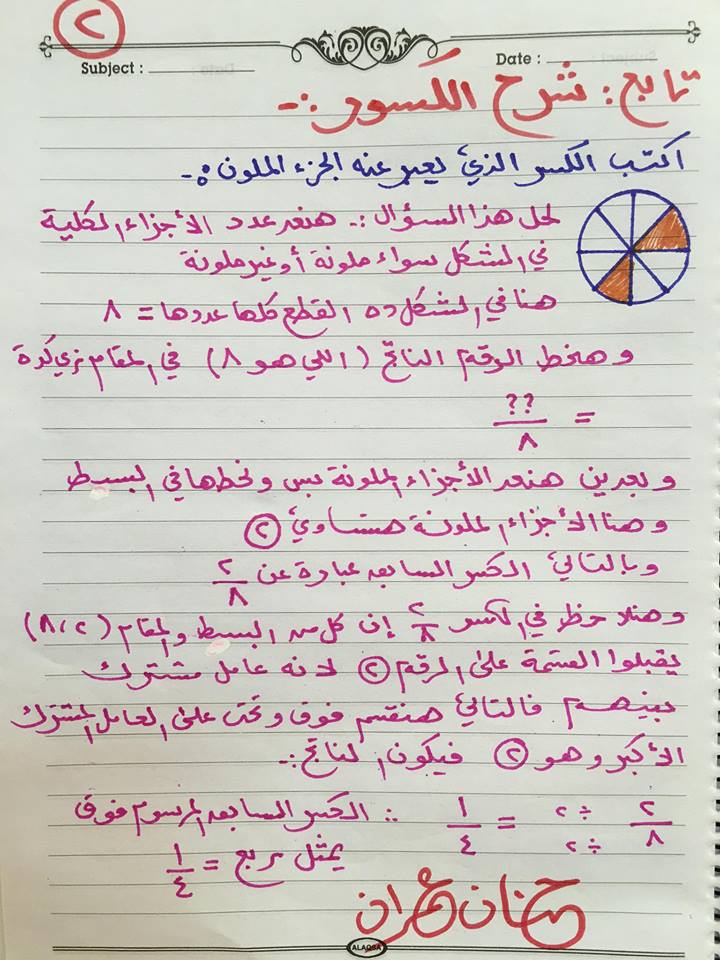 ٢
Subject :
Date :
تابع : شرح الكسور :-
اكتب الكسر الذي يعبر عنه الجزء الملون :-
لحل هذا السؤال :- هنعد عدد الأجزاء الكلية
في الشكل سواء ملونة أو غير ملونة
هنا في الشكل ده القطع كلها عددها = ٨
و هنحط الرقم الناتج ( اللي هو ٨ ) في المقام زي كدة
= ??/٨
و بعدين هنعد الأجزاء الملونة بس و نحطها في البسط
و هنا الأجزاء الملونة هتساوي ٢
و بالتالي الكسر السابق عبارة عن ٢/٨
و هنلاحظ في الكسر ٢/٨ إن كل من البسط والمقام (٨،٢)
يقبلوا القسمة على الرقم ٢ لانه عامل مشترك
بينهم فالتالي هنقسم فوق و تحت على العامل المشترك
الأكبر و هو ٢ فيكون الناتج :-
٢/٨ ÷٢/÷٢ = ١/٤ ∴ الكسر السابق المرسوم فوق
يمثل ربع = ١/٤
حنان عمران
ALAQSA